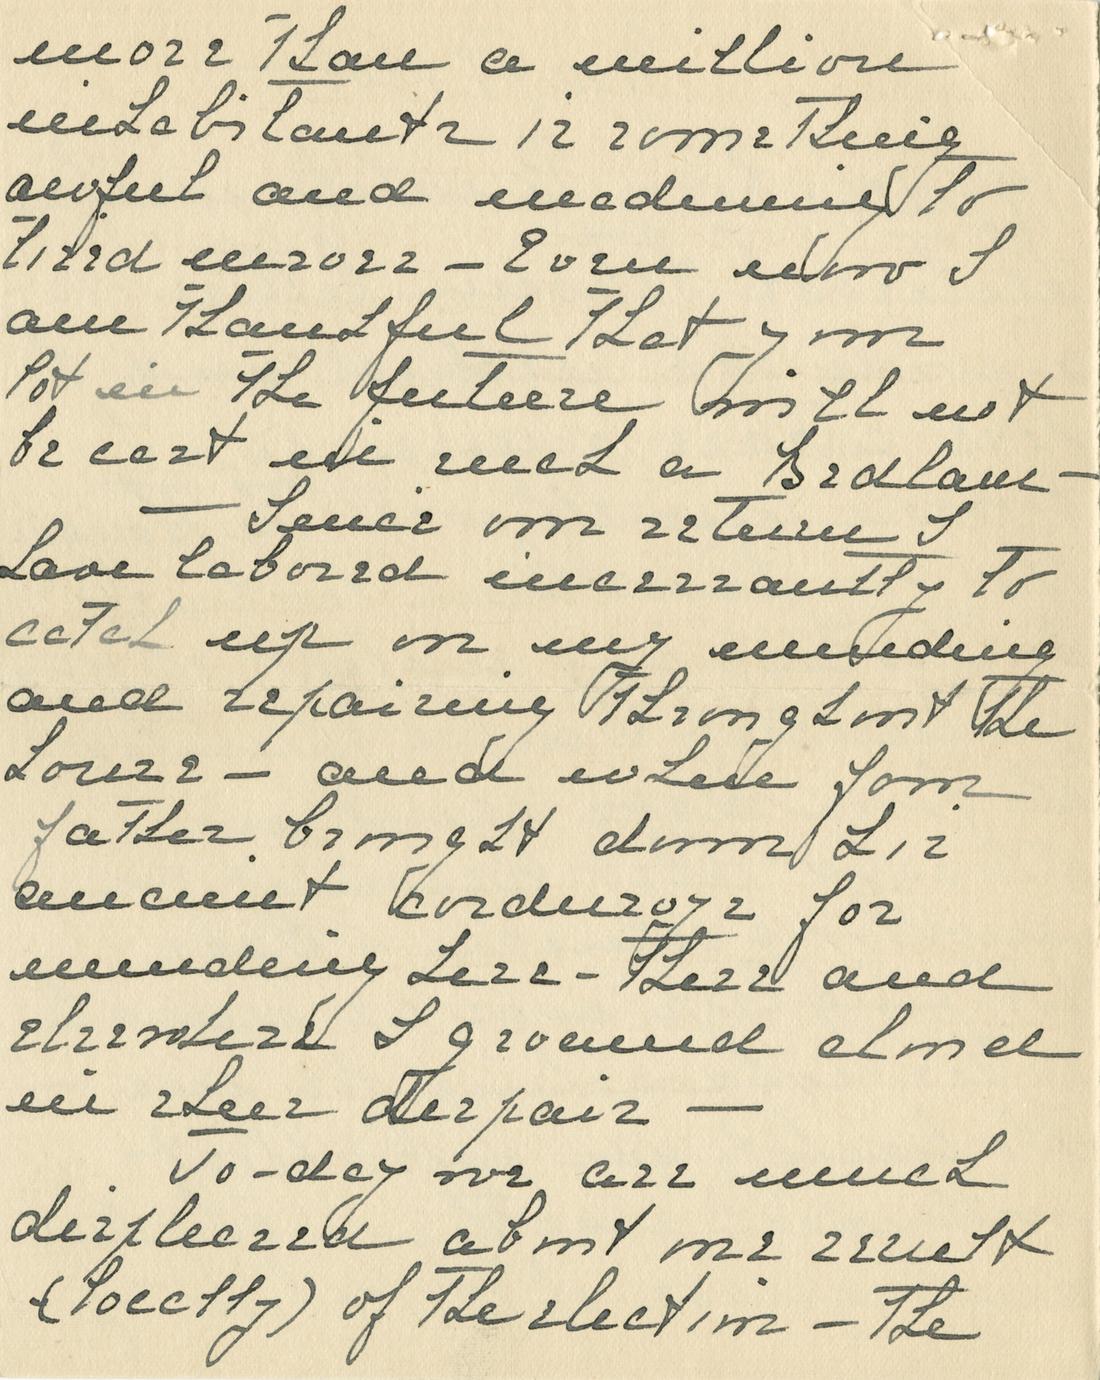 more than a million
inhabitants is something
awful and maddening to
tired nerves - Even now I
am thankful that your
lot in the future will not
be cast in such a Bedlam -
- Since our return I
have labored incessantly to
catch up on my mending
and repairing throughout the
house - and when your
father brought down his
ancient corduroys for
mending here - there and
elsewhere I groaned aloud
in sheer despair -
To-day we are much
displeased about one result
(locally) of the election - The